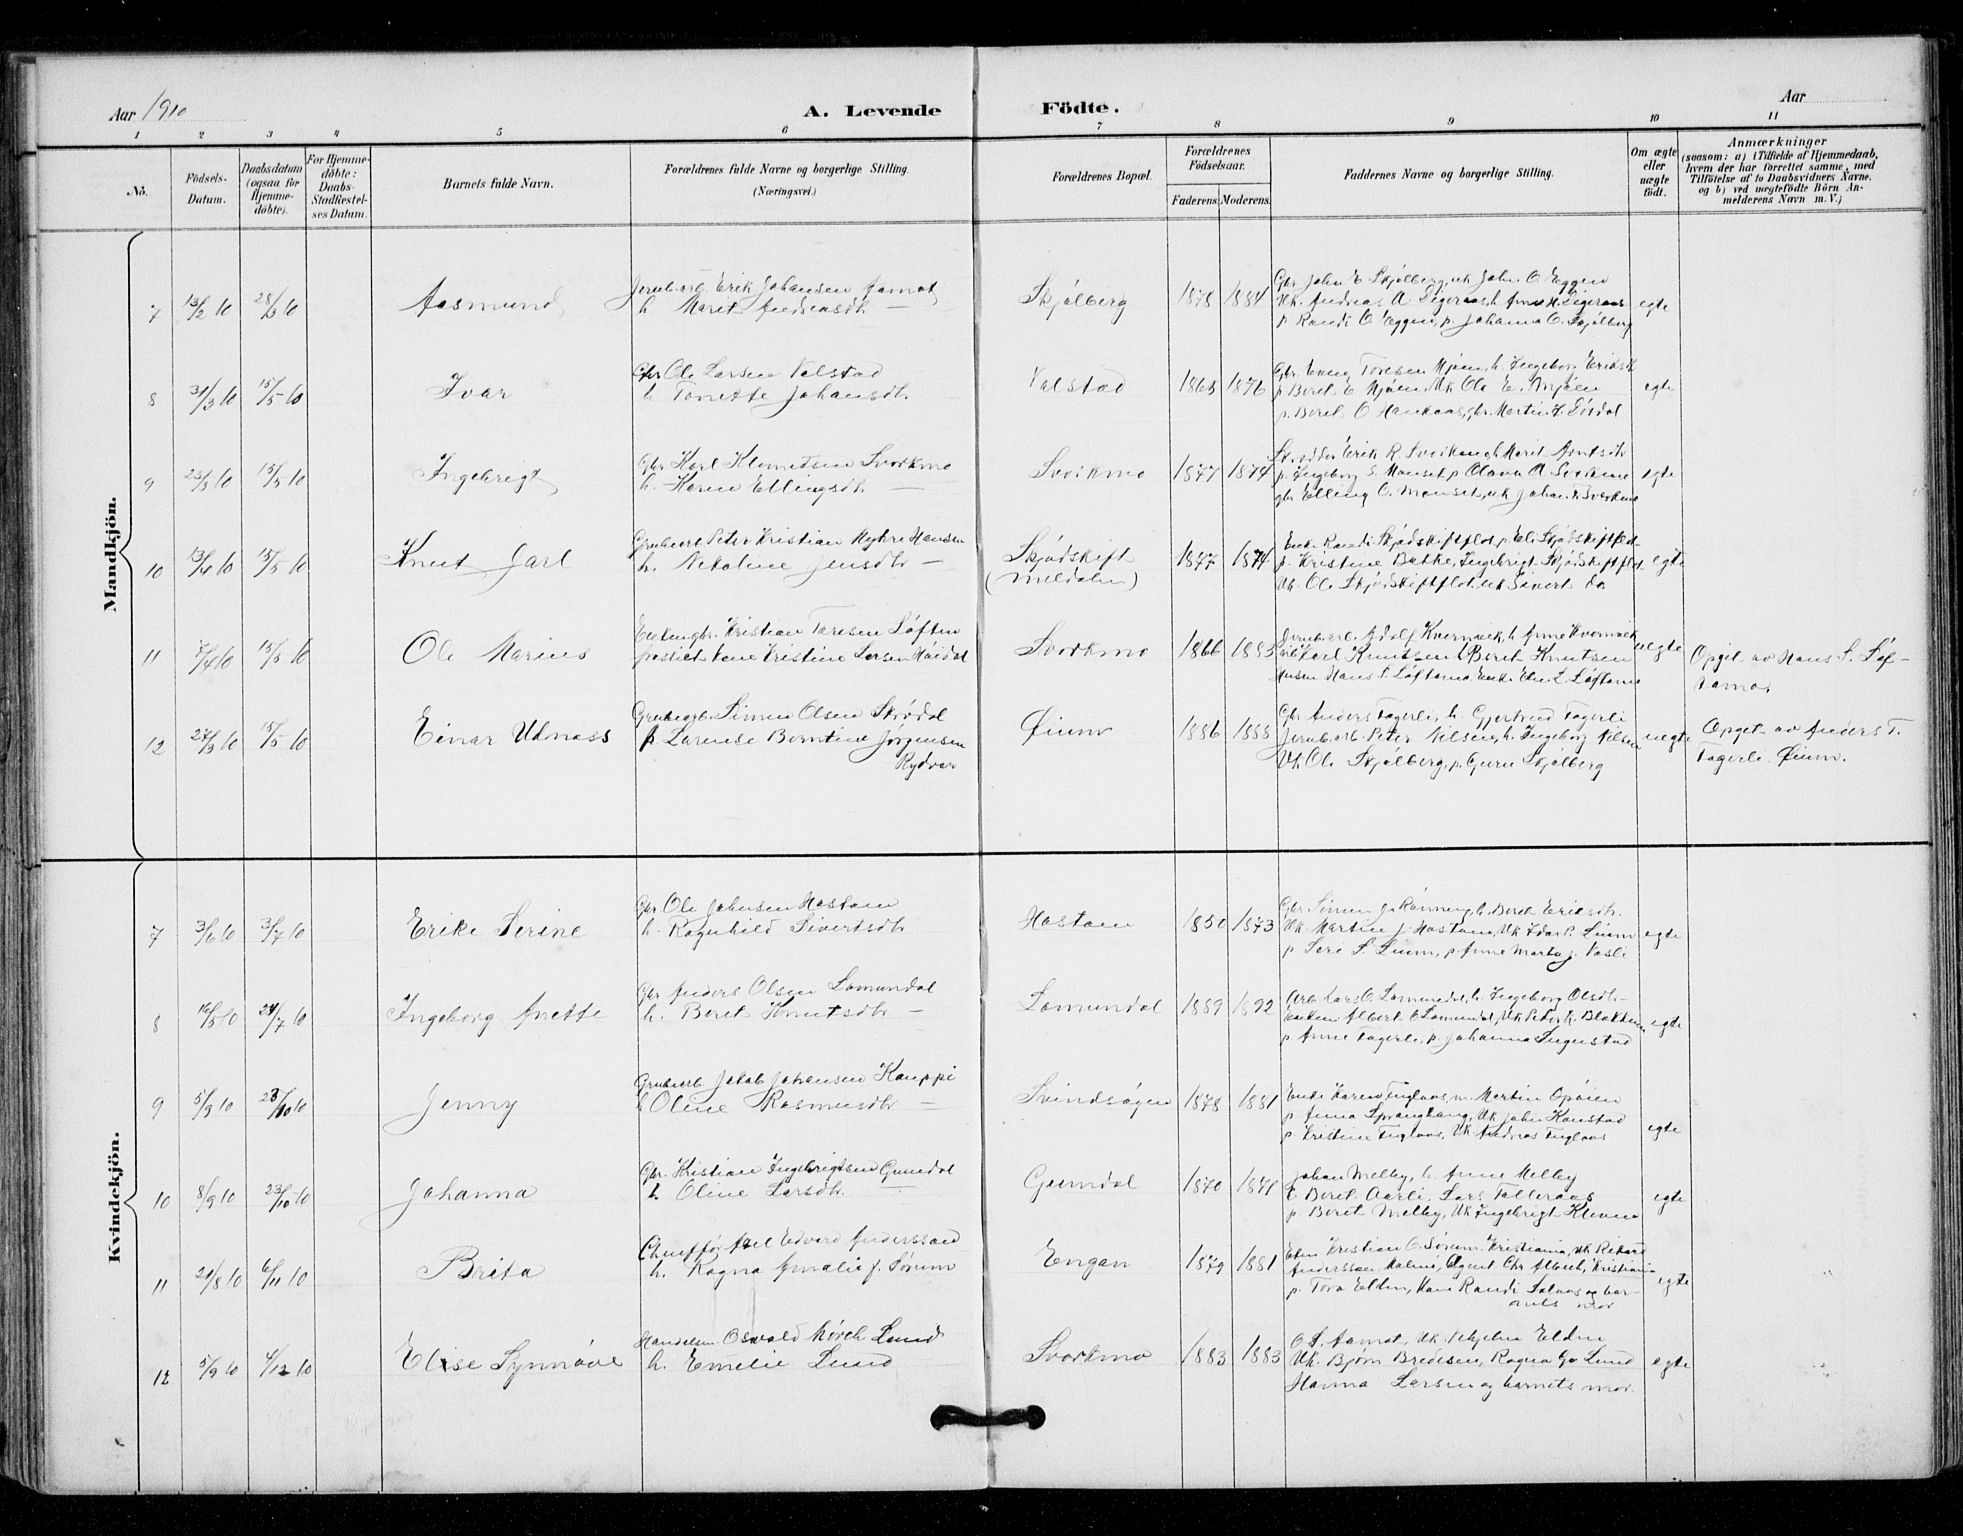 Aar 1910
A. Levende Födte.
Aar
1 2 3 4 5 6 7 8 9 10 11
No.
Födsels-Datum.
Daabsdatum (ogsaa for Hjemmedöbte).
For Hjemmedöbte: Daabs-Stadfæstelses Datum.
Barnets fulde Navn.
Forældrenes fulde Navne og borgerlige Stilling.
(Næringsvei.)
Forældrenes Bopæl.
Forældrenes Födselsaar.
Faderens. Moderens.
Faddernes Navne og borgerlige Stilling.
Om ægte eller uægte födt.
Anmærkninger
(saasom: a) i Tilfælde af Hjemmedaab,
hvem der har forrettet samme, med
Tilföielse af to Daabsvidners Navne.
og b) ved uægtefödte Börn An-
melderens Navn m. V.)
Mandkjön.
7 13/2 10 28/3 10 Aasmund
Jernb.arb. Erik Johansen Aamot
h. Marit Andreasdtr
Skjølberg 1878 1884
Gbr John E Skjølberg, uk John O. Eggen
Uk. Andreas A Digeraas, h. Anne M. Digeraas
p Randi O. Eggen, p. Johanna O. Skjølberg
egte
8 31/3 10 15/5 10 Ivar
Gbr Ole Larsen Valstad
h. Tonette Johansdtr
Valstad 1863 1876
Gbr. Even Toresen Mjøen, h. Ingeborg Eriksdtr
p Beret E Mjøen, Uk Ole E. Mjøen
p. Beret O Hankaas, gbr. Martin Dördal
egte
9 23/3 10 15/5 10 Ingebrigt
Gbr Karl Klemetsen Svorkmo
h. Karen Ellingsdtr
Svorkmo 1877 1874
Skrædder Erik R. Svorkmo, h Marit Arntsdtr
p. Ingeborg S. Monset, p. Olava A Svorkmo
gbr Elling O. Monset, uk Johan K Svorkmo
egte
10 13/4 10 15/5 10 Knut Jarl
Grubearb Peter Kristian Myhre Hansen
h. Nikoline Jensdtr
Skjødskift
(Meldalen)
1877 1874
Enke Randi Skjødskiftflot, p. Eli Skjødskiftflot
p. Kristine Bakke, Ingebrigt Skjødskiftflot
Uk. Ole Skjødskiftflot, uk Sivert do
egte
11 7/4 10 15/5 10 Ole Marius
Enkem gbr. Kristian Toresen Løften
Kristine Larsen
Svorkmo 1866 1883
Jernb.arb. Adolf Kvernvik, h Anne Kvernvik
Karl Knutsen, Beret Knutsen
Husm Hans S. Løftamo. Enke Elen L Løftamo
uegte
Opgit av Hans S. Løf-
tamo.
12 27/3 10 15/5 10 Einar Udnæss
Grubearb. Simen Olsen Skrødal
p Larense Berntine Jørgensen
Rydvar
Øium 1886 1888
Gbr Anders Fagerli, h. Gjertrud Fagerli
Jernb.arb. Peter Nilsen, h. Ingeborg Nilsen
Uk Ole Skjølberg, p. Guru Skjølberg
uegte
Opget av Anders T.
Fagerli. Øium.
Kvindekjön.
7 3/6 10 3/7 10 Erike Serine
Gbr Ole Johnsen Hostam
h. Ragnhild Sivertsdtr
Hostam 1850 1873
Gbr. Simen J. Rønning, h. Beret Eriksdtr.
Uk. Martin J. Hostam, Uk Idar S. Lium
p Sere S. Lium, p Anne Marta J. Vasli
egte
8 16/5 10 24/7 10 Ingeborg Anette
Gbr Anders Olsen Lomundal
h. Beret Knutsdtr
Lomundal 1889 1892
Arb Lars O. Lomundal, h. Ingeborg Olsdtr
Enkem Albert O Lomundal, Uk Peder K. Blokkum
p Anne Fagerli, p. Johanna Ingustad
egte
9 5/9 10 23/10 10 Jenny
Grubearb Jakob Johansen Kauppi
h Oline Rasmusdtr
Svindsøgen 1878 1881
Enke Karen Fuglaas, m. Martin Opøien
p. Anna Spranghaug, Uk John Kanstad
p. Kristine Fuglaas, Uk Andreas Fuglaas
egte
10 8/9 10 23/10 10 Johanna
Gbr. Kristian Ingebrigtsen Gumdal
h. Oline Larsdtr.
Gumdal 1870 1871
Johan Melby, h. Anne Melby
h Beret Aarli, Lars Tolleraas
p. Beret Melby, Uk Ingebrigt Kleven
egte
11 21/8 10 6/11 10 Brita
Chauffør Axel Edvard Anderssøn
h. Ragna Amalie J. Sørum
Engan 1879 1881
Kristian O. Sørum. Kristiania, Uk Rikard
Anderssøn Malmø, Agent Chr Albech, Kristiania
p. Tora Elden, Randi Solaas og bar-
nets mor
egte
12 5/9 10 4/12 10 Elise Synnøve
Handelsm. Osvald Mörch Lund
h. Emelie Lund
Svorkmo 1883 1883
O L. Aamot, Uk. Vehjelm Elden
Uk. Bjørn Bredesen, Ragna Lund
Hanna Larsen og barnets mor.
egte